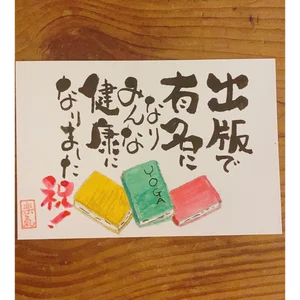 出版で
有名に
なり
みんな
健康に
なりました
祝!
YOGA